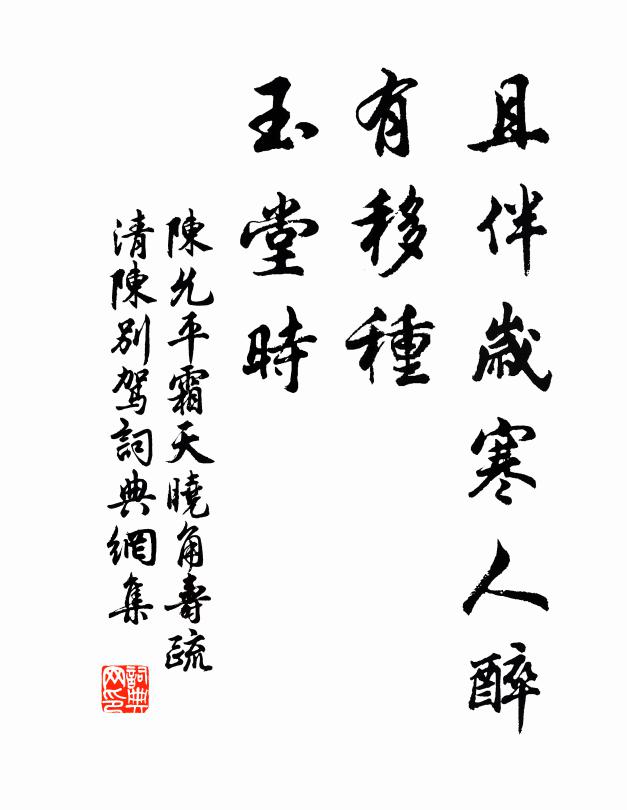 且伴歲寒人醉
有移種
玉堂時
陳允平霜天曉角壽疏
清陳別駕詞典網集
詞典
网印